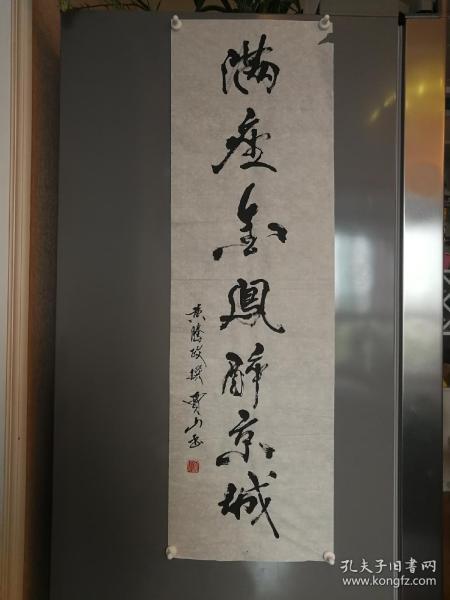 满座金凤醉京城
黄腾政撰 贾山书
孔夫子旧书网
www.kongfz.com